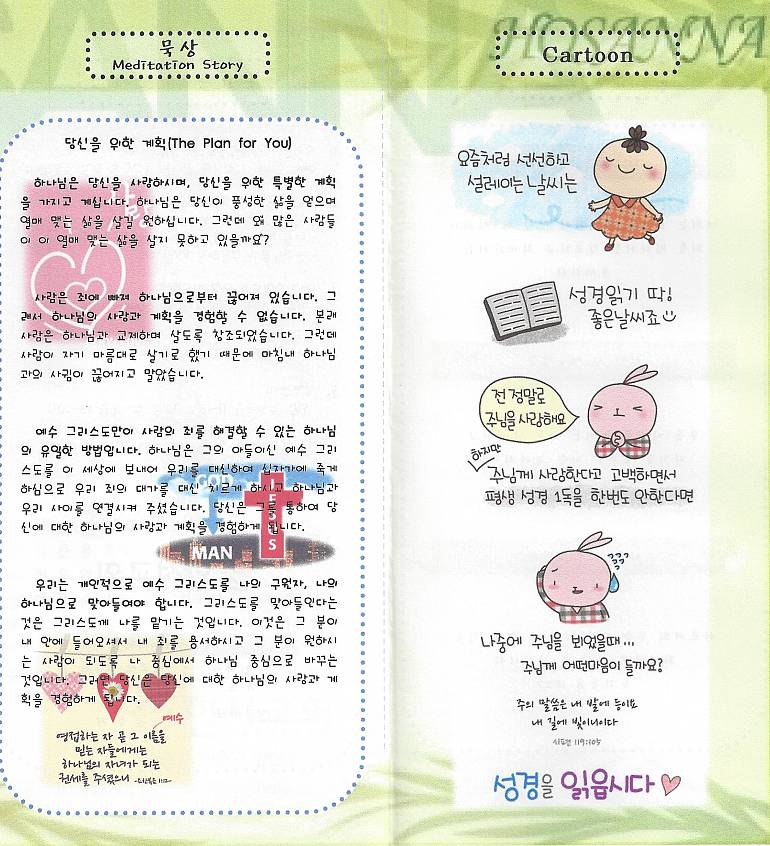 묵상
Meditation Story
당신을 위한 계획(The Plan for You)
하나님은 당신을 사랑하시며, 당신을 위한 특별한 계획
을 가지고 계십니다. 하나님은 당신이 풍성한 삶을 얻으며
열매 맺는 삶을 살길 원하십니다. 그런데 왜 많은 사람들
이 이 열매 맺는 삶을 살지 못하고 있을까요?
사람은 죄에 빠져 하나님으로부터 끊어져 있습니다. 그
래서 하나님의 사랑과 계획을 경험할 수 없습니다. 본래
사람은 하나님과 교제하며 살도록 창조되었습니다. 그런데
사람이 자기 마음대로 살기로 했기 때문에 마침내 하나님
과의 사귐이 끊어지고 말았습니다.
예수 그리스도만이 사람의 죄를 해결할 수 있는 하나님
의 유일한 방법입니다. 하나님은 그의 아들이신 예수 그리
스도를 이 세상에 보내어 우리를 대신하여 십자가에 죽게
하심으로 우리 죄의 대가를 대신 치르게 하시고 하나님과
우리 사이를 연결시켜 주셨습니다. 당신은 그를 통하여 당
신에 대한 하나님의 사랑과 계획을 경험하게 됩니다.
GOD
JESUS
MAN
우리는 개인적으로 예수 그리스도를 나의 구원자, 나의
하나님으로 맞아들여야 합니다. 그리스도를 맞아들인다는
것은 그리스도께 나를 맡기는 것입니다. 이것은 그 분이
내 안에 들어오셔서 내 죄를 용서하시고 그 분이 원하시
는 사람이 되도록 나 중심에서 하나님 중심으로 바꾸는
것입니다. 그러면 당신은 당신에 대한 하나님의 사랑과 계
획을 경험하게 됩니다.
예수
영접하는 자 곧 그 이름을
믿는 자들에게는
하나님의 자녀가 되는
권세를 주셨으니 -요한복음 1:12-
HOSANNA
Cartoon
요즘처럼 선선하고
설레이는 날씨는
성경읽기 딱!
좋은날씨죠
전 정말로
주님을 사랑해요
하지만
주님께 사랑한다고 고백하면서
평생 성경 1독을 한번도 안한다면
???
나중에 주님을 뵈었을때...
주님께 어떤마음이 들까요?
주의 말씀은 내 발에 등이요
내 길에 빛이니이다
시편 119:105
성경을 읽읍시다